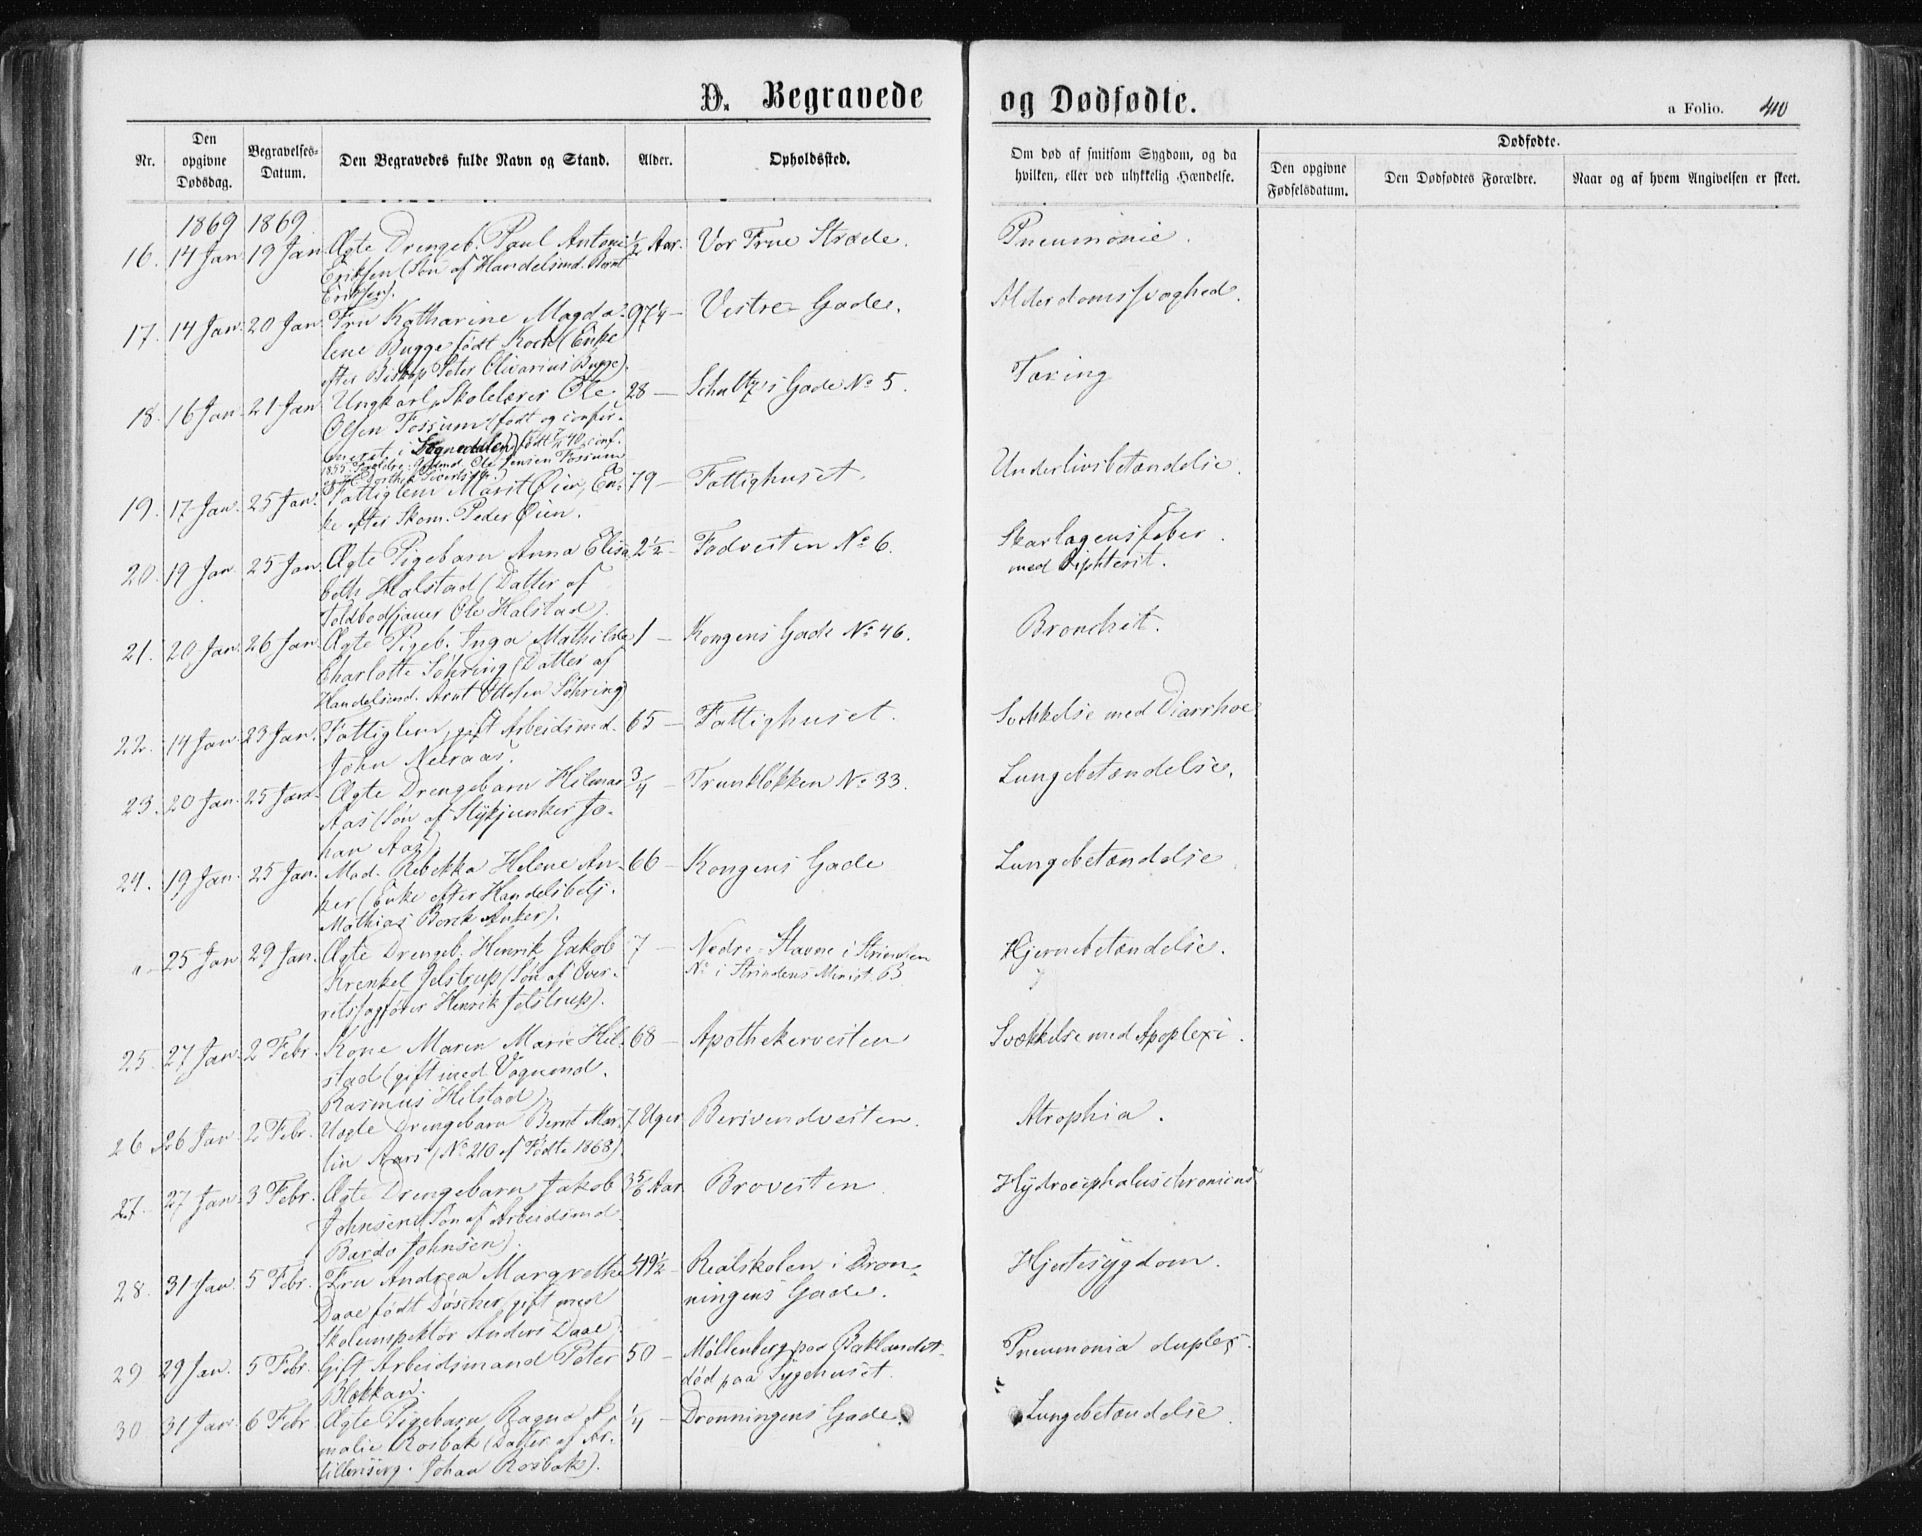 D. Begravede og Dødfødte.
a Folio. 410
Nr.
Den opgivne Dødsdag.
Begravelses-Datum.
Den Begravedes fulde Navn og Stand.
Alder.
Opholdssted.
Om død af smitsom Sygdom, og da hvilken, eller ved ulykkelig Hændelse.
Dødfødte.
Den opgivne Fødselsdatum.
Den Dødfødtes Forældre.
Naar og af hvem Angivelsen er skeet.
1869 1869
16. 14 Jan. 19 Jan. Ægte Drengeb. Paul Antoni ½ Aar. Vor Frue Stræde. Pneumonie.
Eriksen (Søn af Handelsmd. Bernt
Eriksen).
17. 14 Jan. 20 Jan. Fru Katharine Magda- 97¼ — Vestre Gade. Alderdomssvaghed.
lene Bugge født Koch (Enke
efter Biskop Peter Olivarius Bugge).
18. 16 Jan. 21 Jan. Ungkarl, Skolelærer Ole 28 — Schultz's Gade No 5. Tæring
Olsen Fossum (født og confir-
meret i Sognedalen) født 7/4 40, conf.
1855 Forældre: Gaardmd. Ole Jensen Fossum
19. 17 Jan. 25 Jan. Fattiglem Marit Øien, En- 79 — Fattighuset. Underlivsbetændelse.
ke efter Skom. Peder Øien.
20. 19 Jan. 25 Jan. Ægte Pigebarn Anna Elisa 2½ — Fadvesten No 6. Skarlagensfeber
med Diphterit.
beth Halstad (Datter af
Toldbodsjauer Ole Halstad).
21. 20 Jan. 26 Jan. Ægte Pigeb. Inga Mathilde 1 — Kongens Gade No 46. Bronchit.
Charlotte Söhring (Datter af
Handelsmd. Arnt Ottesen Söhring)
22. 14 Jan. 23 Jan. Fattiglem, gift Arbeidsmd. 65 — Fattighuset. Svækkelse med Diarrhoe
John Neeraas.
23. 20 Jan. 25 Jan. Ægte Drengebarn Hilmar ¾ — Trunkløkken No 33. Lungebetændelse.
Aas (Søn af Stykjunker Jo-
han Aas).
24. 19 Jan. 25 Jan. Mad. Rebekka Helene An- 66 — Kongens Gade Lungebetændelse
ker (Enke efter Handelsbetj.
Mathias Borck Anker).
25 Jan. 29 Jan. Ægte Drengeb. Henrik Jakob 7 — Nedre Stavne i Strinden Hjernebetændelse.
No i Strindens Minist. 63
Krenkel Jelstrup (Søn af Over-
retssagfører Henrik Jelstrup).
25. 27 Jan. 2 Febr. Kone Maren Marie Hil- 68 — Apothekervesten Svækkelse med Apoplexi.
stad (gift med Vognmd.
Rasmus Hilstad).
26. 26 Jan. 2 Febr. Uægte Drengebarn Bernt Mar- 7 Uger Bersvendvesten. Atrophia.
tin Aars (No 210 af Fødte 1868)
27. 27 Jan. 3 Febr. Ægte Drengebarn Jakob 3 5/6 Aar Brovesten Hydrocephalus chronicus
Johnsen (Søn af Arbeidsmd.
Bardo Johnsen).
28. 31 Jan. 5 Febr. Fru Andrea Margrethe 49½ — Realskolen i Dron- Hjertesygdom.
ningens Gade.
Daae født Döscher, gift med
Skoleinspektør Anders Daae
29 29 Jan. 5 Febr. Gift Arbeidsmand Peter 50 — Møllenberg paa Baklandet Pneumonia duplex.
død paa Sygehuset.
Blekkan.
30 31 Jan. 6 Febr. Ægte Pigebarn Ragna A- ¼ — Dronningens Gade. Lungebetændelse.
malie Rosbak (Datter af Ar-
tillerisergt. Johan Rosbak).